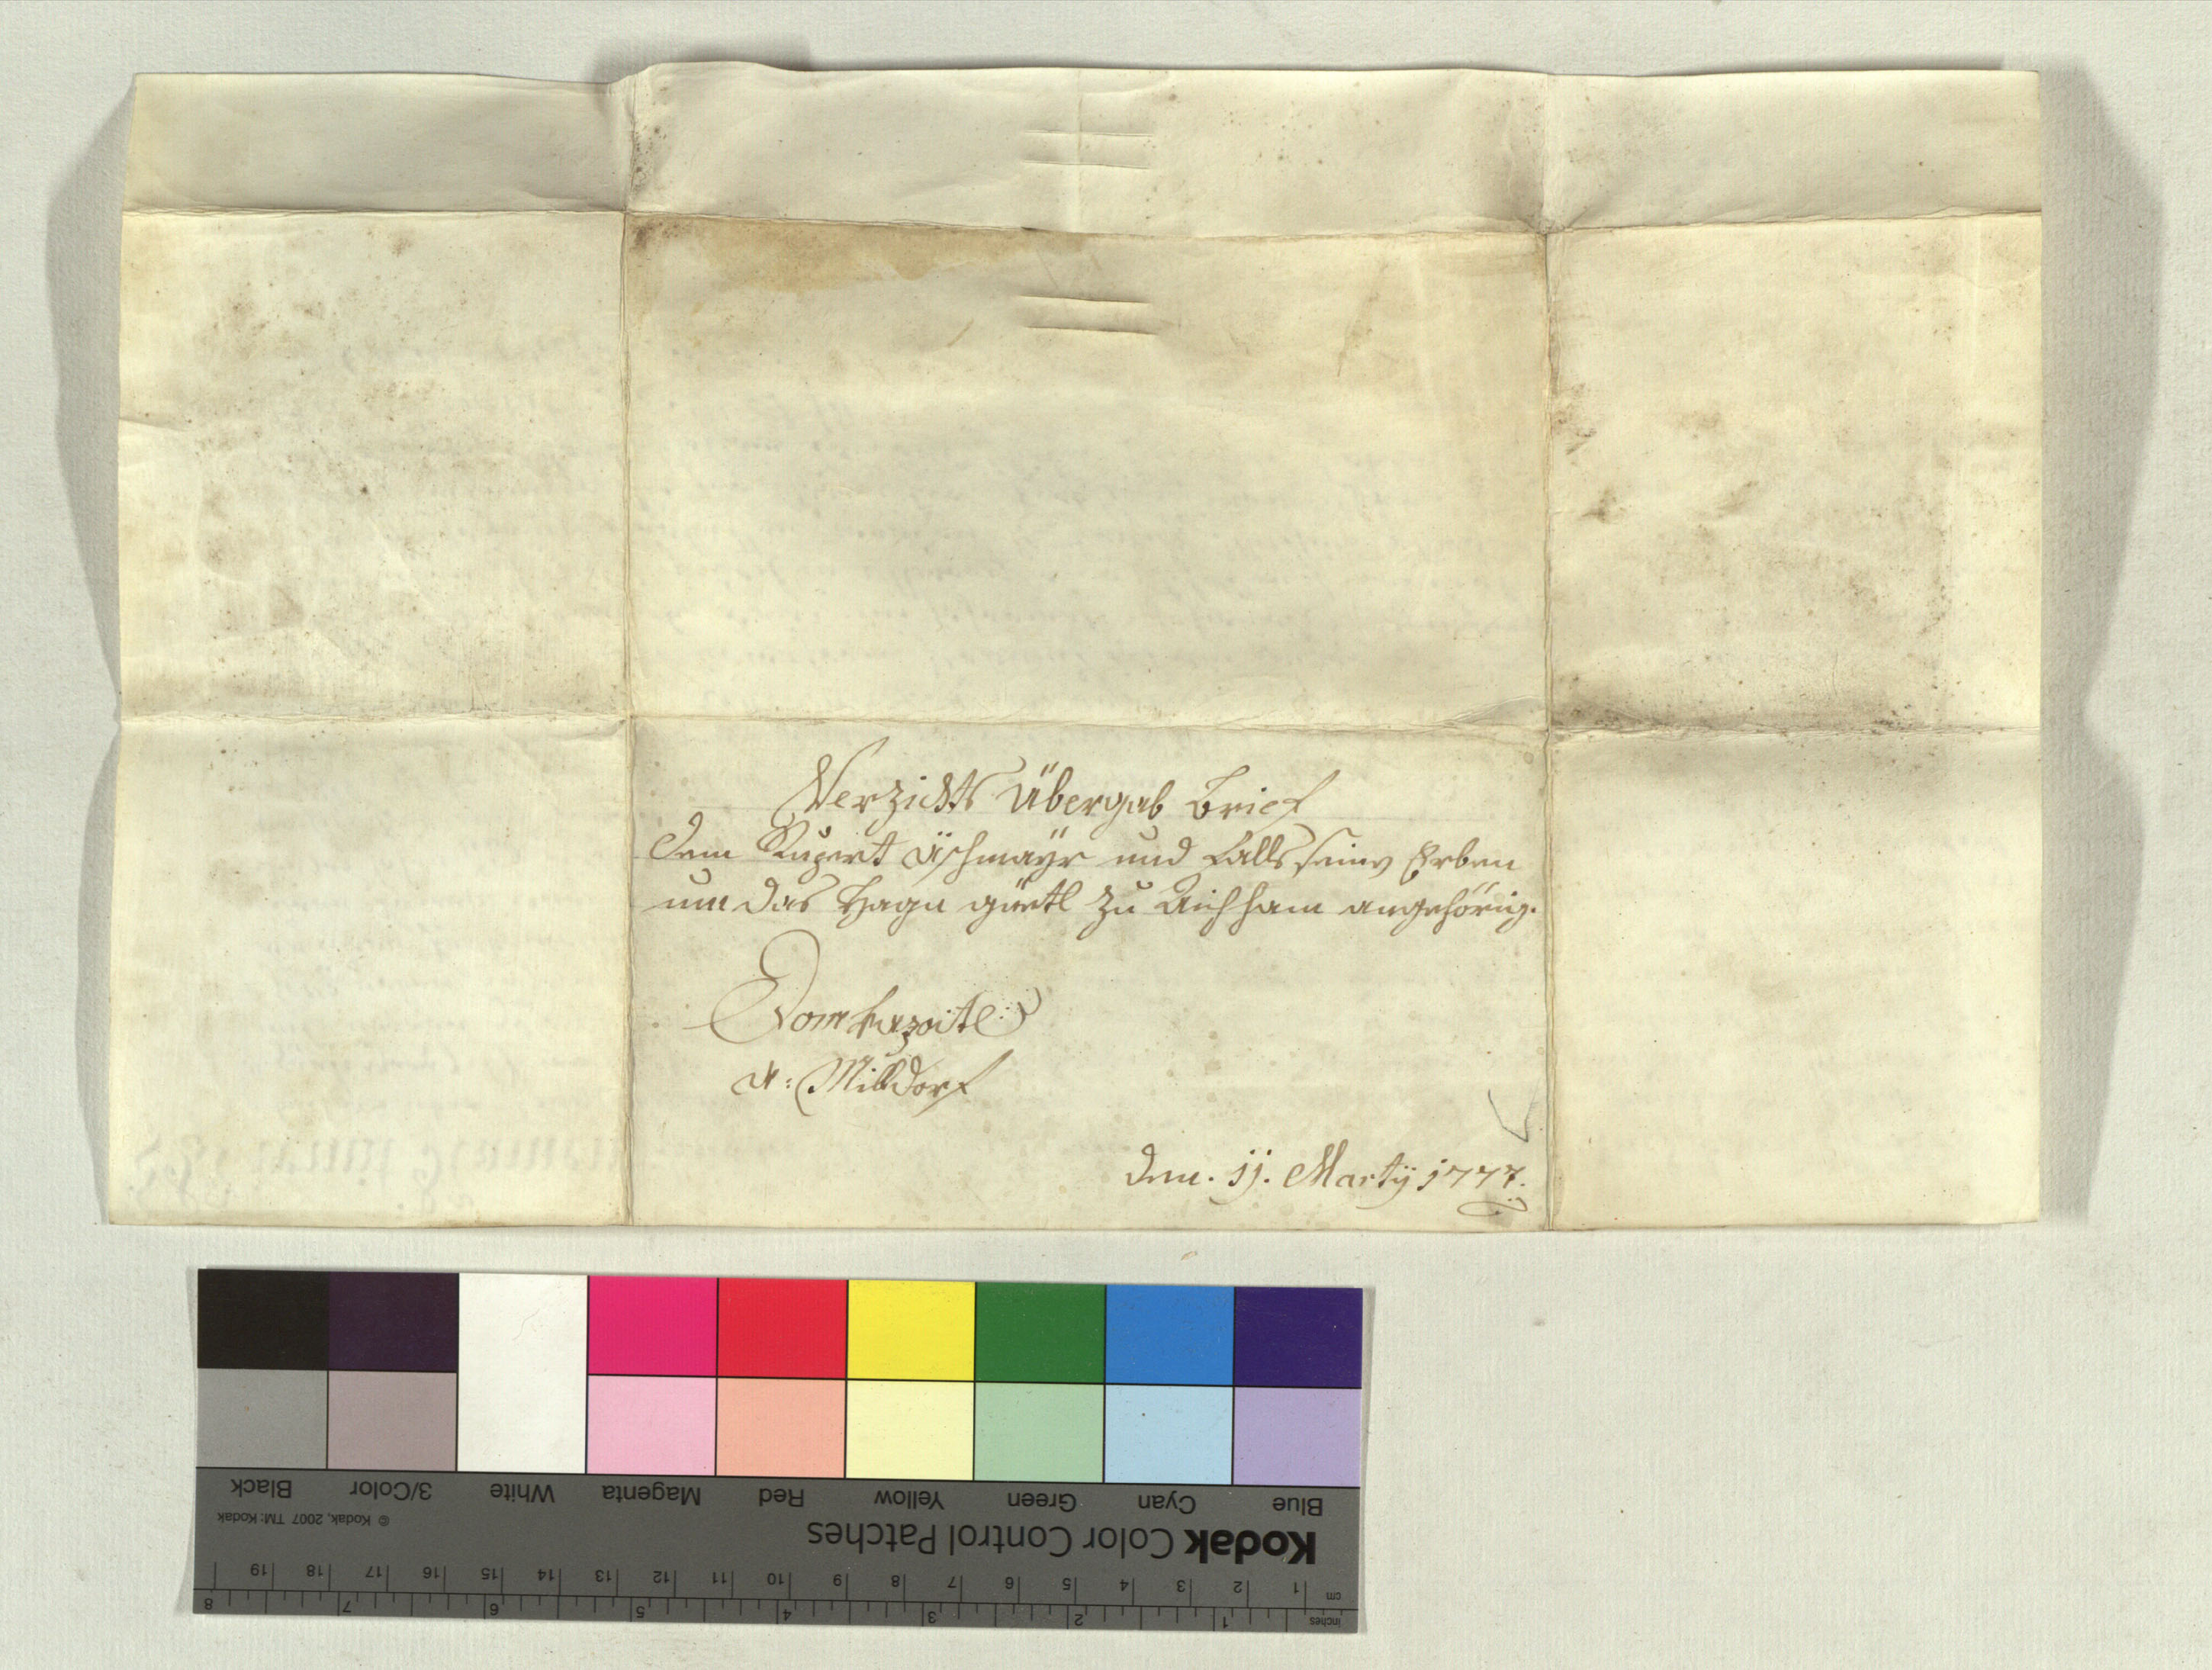 Verzichts Übergab Brief
dem Rupert Aschmayr und falls seinen Erben
um das Hagn gärtl zu Aichham angehörig.
Domkapitl:
A: Mildorf
den. 11. Martÿ 1777.
Blue Cyan Green Yellow Red Magenta White 3/Color Black
Kodak Color Control Patches
© Kodak, 2007 TM: Kodak
cm 1 2 3 4 5 6 7 8 9 10 11 12 13 14 15 16 17 18 19
inches 1 2 3 4 5 6 7 8